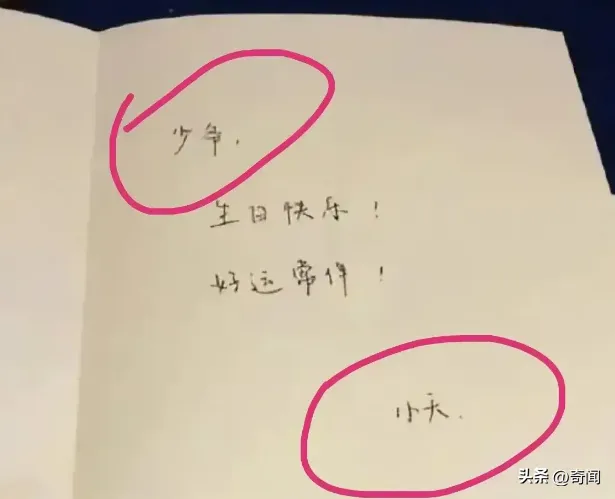 少爷,
生日快乐!
好运常伴!
小天.
头条 @奇闻